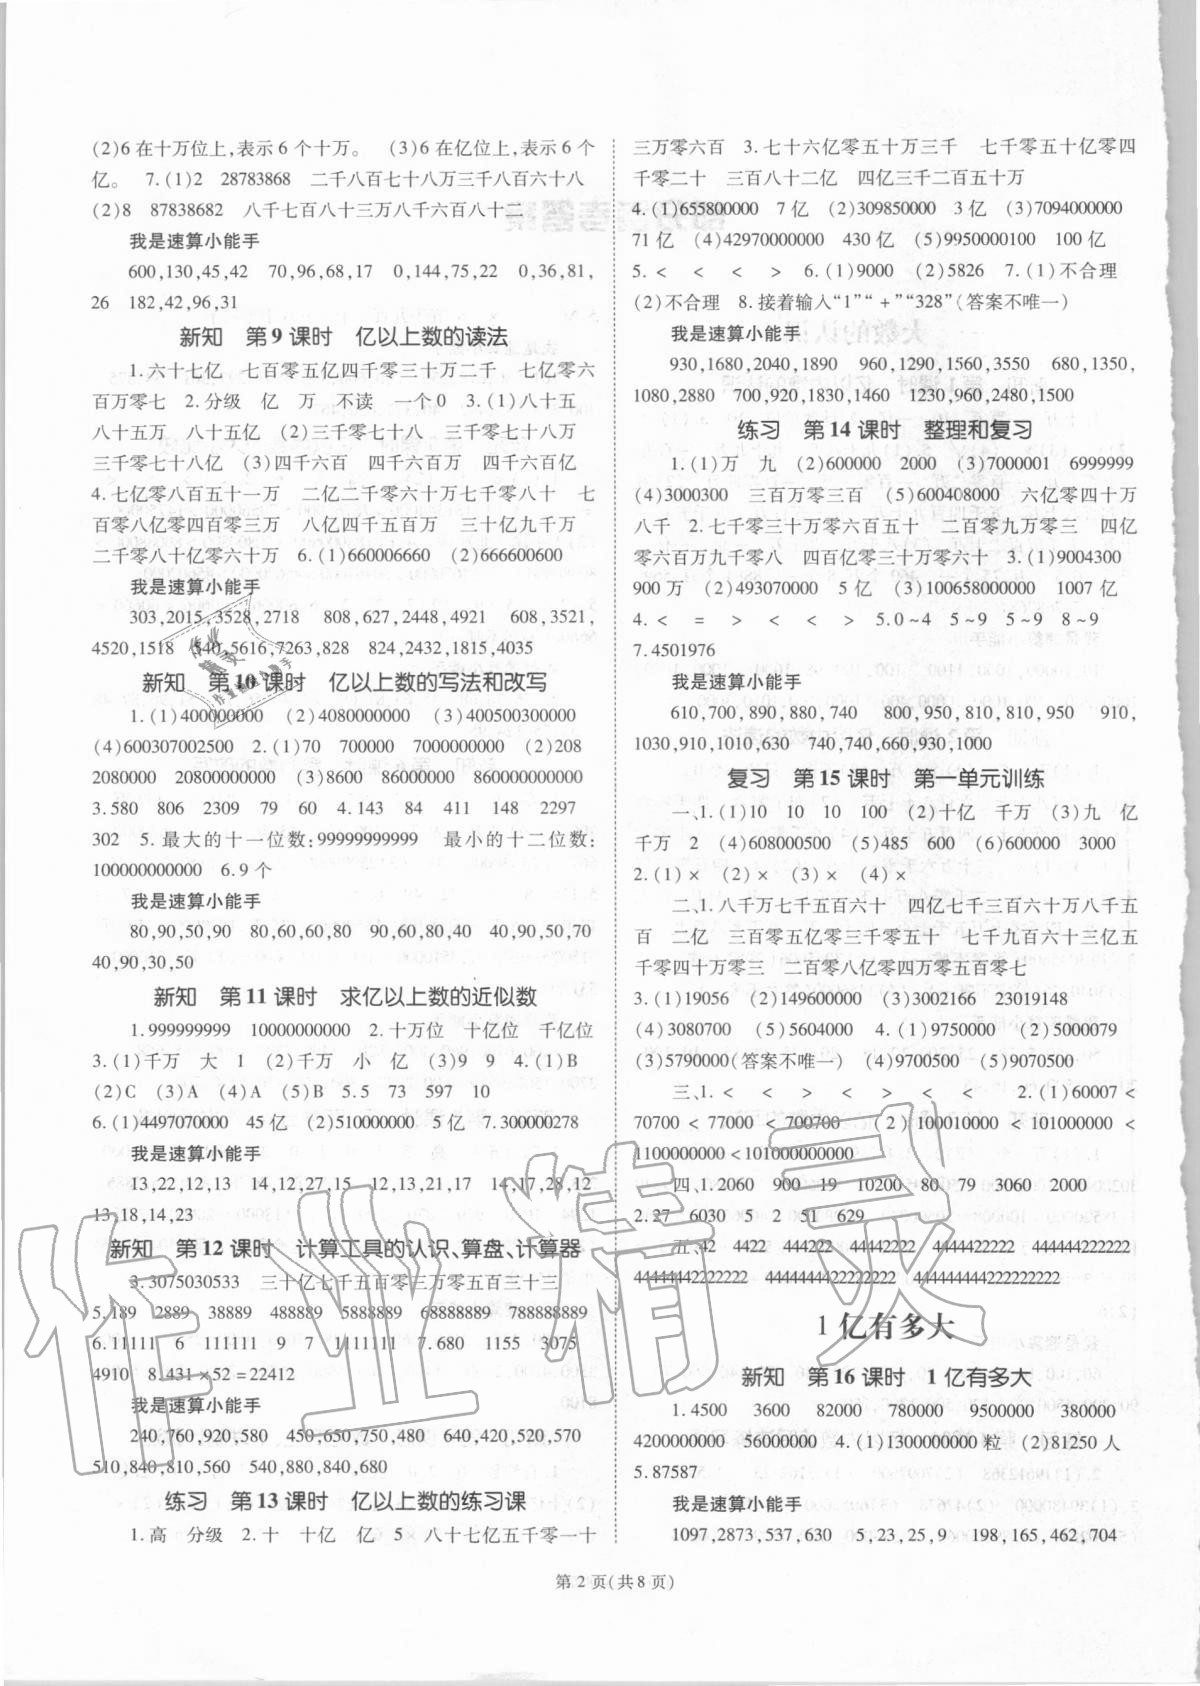 (2)6在十万位上,表示6个十万。 (3)6在亿位上,表示6个
亿。 7.(1)2 28783868 二千八百七十八万三千八百六十八
(2)8 87838682 八千七百八十三万八千六百八十二
我是速算小能手
600,130,45,42 70,96,68,17 0,144,75,25 0,36,81,
26 182,42,96,31
新知 第9课时 亿以上数的读法
1.六十七亿 七百零五亿四千零三十万二千 七亿零六
百万零七 2.分级 亿 万 不读 一个0 3.(1)八十五
八十五万 八十五亿 (2)三千零七十八 三千零七十八万
三千零七十八亿 (3)四千六百 四千六百万 四千六百亿
4.七亿零八百五十一万 二亿二千零六十万七千零八十 七
百零八亿零四百零三万 八亿四千五百万 三十亿九千万
二千零八十亿零六十万 6.(1)660006660 (2)666600600
我是速算小能手
303,2015,3528,2718 808,627,2448,4921 608,3521,
4520,1518 540,5616,7263,828 824,2432,1815,4035
新知 第10课时 亿以上数的写法和改写
1.(1)400000000 (2)4080000000 (3)400500300000
(4)600307002500 2.(1)70 700000 7000000000 (2)208
2080000 20800000000 (3)8600 86000000 860000000000
3.580 806 2309 79 60 4.143 84 411 148 2297
302 5.最大的十一位数:99999999999 最小的十二位数:
100000000000 6.9个
我是速算小能手
80,90,50,90 80,60,60,80 90,60,80,40 40,90,50,70
40,90,30,50
新知 第11课时 求亿以上数的近似数
1.999999999 10000000000 2.十万位 十亿位 千亿位
3.(1)千万 大 1 (2)千万 小 亿 (3)9 9 4.(1)B
(2)C (3)A (4)A (5)B 5.5 73 597 10
6.(1)4497070000 45亿 (2)510000000 5亿 7.300000278
我是速算小能手
13,22,12,13 14,12,27,15 12,13,21,17 14,17,28,12
13,18,14,23
新知 第12课时 计算工具的认识、算盘、计算器
3.3075030533 三十亿七千五百零三万零五百三十三
5.189 2889 38889 488889 5888889 68888889 788888889
6.11111 6 1111111 9 7 11111111 7.680 1155 3075
4910 8.431×52=22412
我是速算小能手
240,760,920,580 450,650,750,480 640,420,520,570
510,840,810,560 540,880,840,680
练习 第13课时 亿以上数的练习课
1.高 分级 2.十 十亿 亿 5 八十七亿五千零一十
三万零六百 3.七十六亿零五十万三千 七千零五十亿零四
千零二十 三百八十二亿 四亿三千二百五十万
4.(1)655800000 7亿 (2)309850000 3亿 (3)7094000000
71亿 (4)42970000000 430亿 (5)9950000100 100亿
5.< < < > 6.(1)9000 (2)5826 7.(1)不合理
(2)不合理 8.接着输入“1”“+”“328”(答案不唯一)
我是速算小能手
930,1680,2040,1890 960,1290,1560,3550 680,1350,
1080,2880 700,920,1830,1460 1230,960,2480,1500
练习 第14课时 整理和复习
1.(1)万 九 (2)600000 2000 (3)7000001 6999999
(4)3000300 三百万零三百 (5)600408000 六亿零四十万
八千 2.七千零三十万零六百五十 二百零九万零三 四亿
零六百万九千零八 四百亿零三十万零六十 3.(1)9004300
900万 (2)493070000 5亿 (3)100658000000 1007亿
4.< = > < < > 5.0~4 5~9 5~9 8~9
7.4501976
我是速算小能手
610,700,890,880,740 800,950,810,810,950 910,
1030,910,1010,630 740,740,660,930,1000
复习 第15课时 第一单元训练
一、1.(1)10 10 10 100 (2)十亿 千万 (3)九 亿
千万 2 (4)608000500 (5)485 600 (6)600000 3000
2.(1)× (2)× (3)× (4)×
二、1.八千万七千五百六十 四亿七千三百六十万八千五
百 二亿 三百零五亿零三千零五十 七千九百六十三亿五
千零四十万零三 二百零八亿零四万零五百零七
3.(1)19056 (2)149600000 (3)3002166 23019148
(4)3080700 (5)5604000 4.(1)9750000 (2)5000079
(3)5790000(答案不唯一) (4)9700500 (5)9070500
三、1.< < < > < < 2.(1)60007<
70700<77000<700700 (2)100010000<101000000<
1100000000<101000000000
四、1.2060 900 19 10200 80 79 3060 2000
2.27 6030 5 2 51 629
五、42 4422 444222 44442222 4444422222 444444222222
44444442222222 4444444422222222 444444444222222222
1亿有多大
新知 第16课时 1亿有多大
1.4500 3600 82000 780000 9500000 380000
4200000000 56000000 4.(1)1300000000粒 (2)81250人
5.87587
我是速算小能手
1097,2873,537,630 5,23,25,9 198,165,462,704
第2页(共8页)
作业精灵